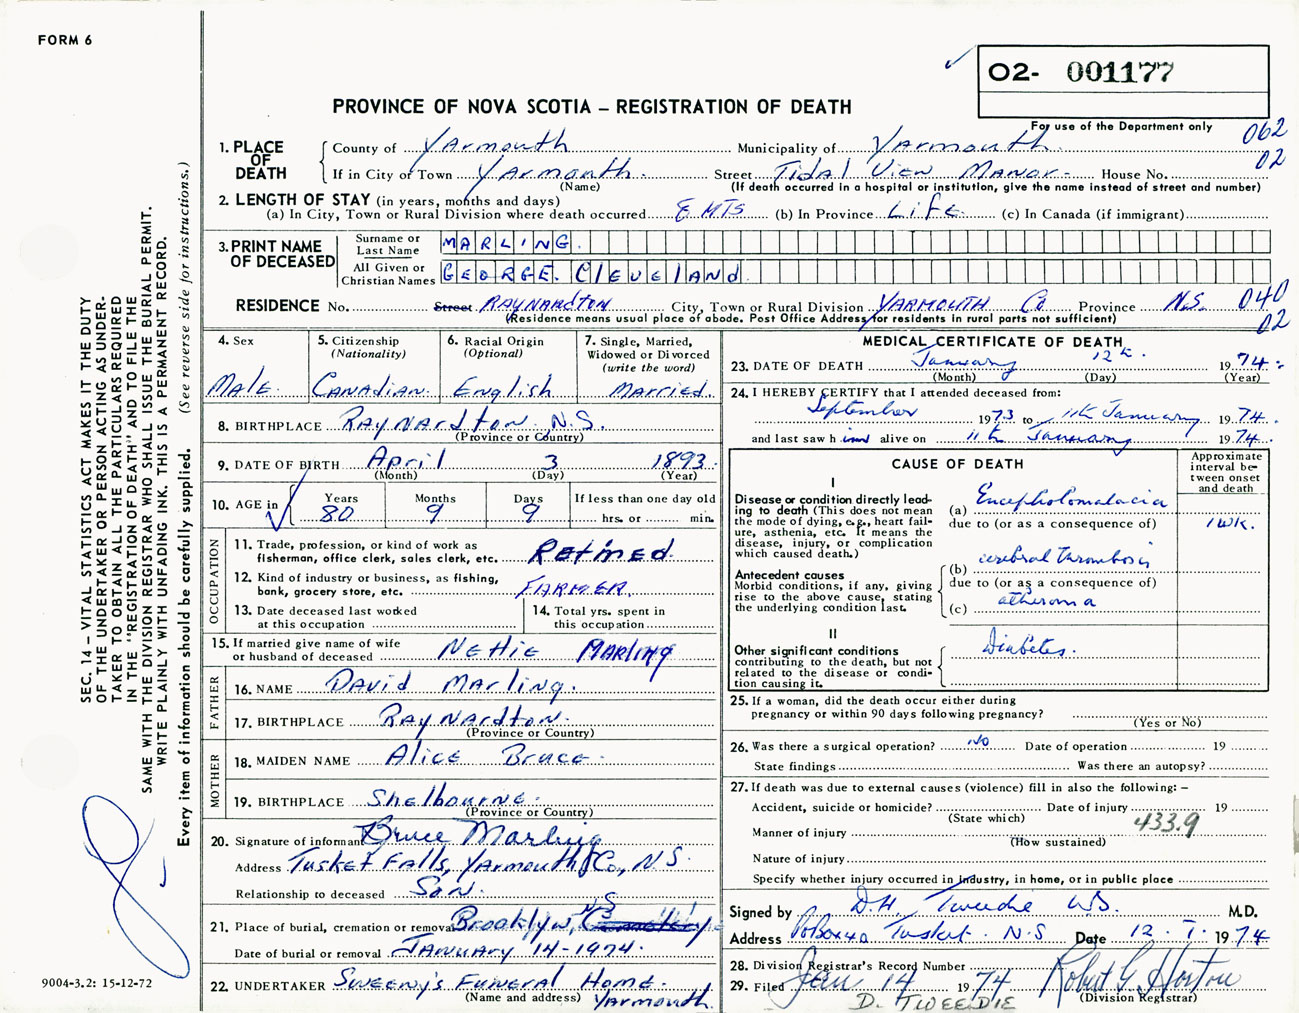 FORM 6
O2- 001177
PROVINCE OF NOVA SCOTIA – REGISTRATION OF DEATH
For use of the Department only
062
02
1. PLACE OF DEATH
County of Yarmouth Municipality of Yarmouth
If in City or Town Yarmouth. Street Tidal View Manor. House No.
(Name) (If death occurred in a hospital or institution, give the name instead of street and number)
2. LENGTH OF STAY (in years, months and days)
(a) In City, Town or Rural Division where death occurred 8 MTS (b) In Province Life. (c) In Canada (if immigrant)
3. PRINT NAME OF DECEASED
Surname or Last Name MARLING.
All Given or Christian Names GEORGE. Cleveland.
RESIDENCE No. Street RAYNARDTON City, Town or Rural Division YARMOUTH Co Province N.S. 040
02
(Residence means usual place of abode. Post Office Address for residents in rural parts not sufficient)
4. Sex Male.
5. Citizenship (Nationality) Canadian.
6. Racial Origin (Optional) English
7. Single, Married, Widowed or Divorced (write the word) Married.
8. BIRTHPLACE Raynardton. N.S.
(Province or Country)
9. DATE OF BIRTH April 3 1893.
(Month) (Day) (Year)
10. AGE in Years 80 Months 9 Days 9 If less than one day old
hrs. or min.
OCCUPATION
11. Trade, profession, or kind of work as fisherman, office clerk, sales clerk, etc. Retired.
12. Kind of industry or business, as fishing, bank, grocery store, etc. FARMER.
13. Date deceased last worked at this occupation
14. Total yrs. spent in this occupation
15. If married give name of wife or husband of deceased Nettie Marling
FATHER
16. NAME David Marling.
17. BIRTHPLACE Raynardton.
(Province or Country)
MOTHER
18. MAIDEN NAME Alice Bruce.
19. BIRTHPLACE Shelbourne.
(Province or Country)
20. Signature of informant Bruce Marling
Address Tusket Falls, Yarmouth Co., N.S.
Relationship to deceased Son.
21. Place of burial, cremation or removal Brooklyn, N.S.
Date of burial or removal January 14-1974.
22. UNDERTAKER Sweeny's Funeral Home.
(Name and address) Yarmouth.
MEDICAL CERTIFICATE OF DEATH
23. DATE OF DEATH January 12th. 1974.
(Month) (Day) (Year)
24. I HEREBY CERTIFY that I attended deceased from:
September 1973 to 11th January 1974.
and last saw him alive on 11th January 1974.
CAUSE OF DEATH
Approximate interval between onset and death
I
Disease or condition directly leading to death (This does not mean the mode of dying, e.g., heart failure, asthenia, etc. It means the disease, injury, or complication which caused death.)
(a) Encephalomalacia
1 wk.
due to (or as a consequence of)
Antecedent causes
Morbid conditions, if any, giving rise to the above cause, stating the underlying condition last.
(b) cerebral thrombosis
due to (or as a consequence of)
(c) atheroma
II
Other significant conditions contributing to the death, but not related to the disease or condition causing it.
Diabetes.
25. If a woman, did the death occur either during pregnancy or within 90 days following pregnancy?
(Yes or No)
26. Was there a surgical operation? No Date of operation 19
State findings Was there an autopsy?
27. If death was due to external causes (violence) fill in also the following: –
Accident, suicide or homicide? Date of injury 19
(State which) 433.9
Manner of injury
(How sustained)
Nature of injury
Specify whether injury occurred in industry, in home, or in public place
Signed by D.H. Tweedie M.D.
Address P.O. Box Tusket. N.S Date 12. 1. 1974.
28. Division Registrar's Record Number
29. Filed Jan 14 1974 Robert G. Horton
(Division Registrar)
D. TWEEDIE
SEC. 14 – VITAL STATISTICS ACT MAKES IT THE DUTY
OF THE UNDERTAKER OR PERSON ACTING AS UNDERTAKER
TO OBTAIN ALL THE PARTICULARS REQUIRED
IN THE "REGISTRATION OF DEATH" AND TO FILE THE
SAME WITH THE DIVISION REGISTRAR WHO SHALL ISSUE THE BURIAL PERMIT.
WRITE PLAINLY WITH UNFADING INK. THIS IS A PERMANENT RECORD.
Every item of information should be carefully supplied. (See reverse side for instructions.)
9004-3.2: 15-12-72